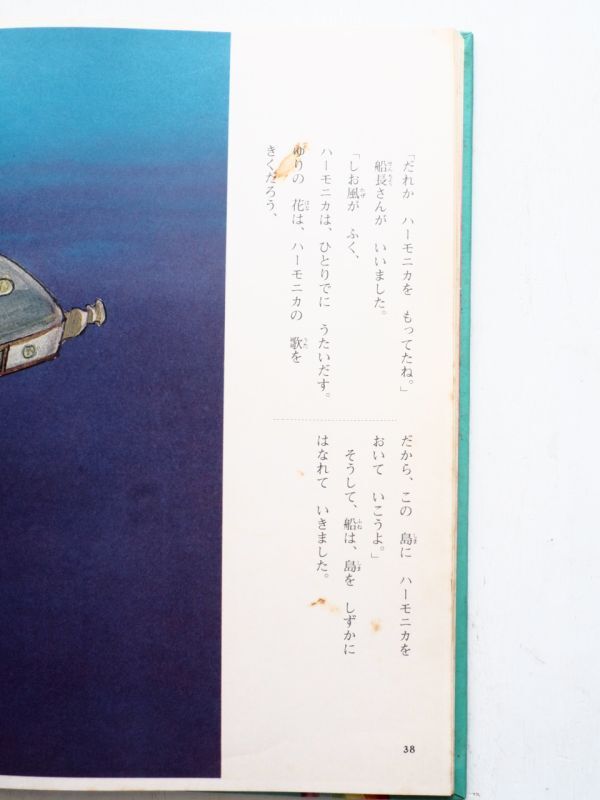 「だれか　ハーモニカを　もってたね。」
船長さんが　いいました。
「しお風が　ふく、
ハーモニカは、ひとりでに　うたいだす。
ゆりの　花は、ハーモニカの　歌を
きくだろう、
だから、この　島に　ハーモニカを
おいて　いこうよ。」
そうして、船は、島を　しずかに
はなれて　いきました。
38